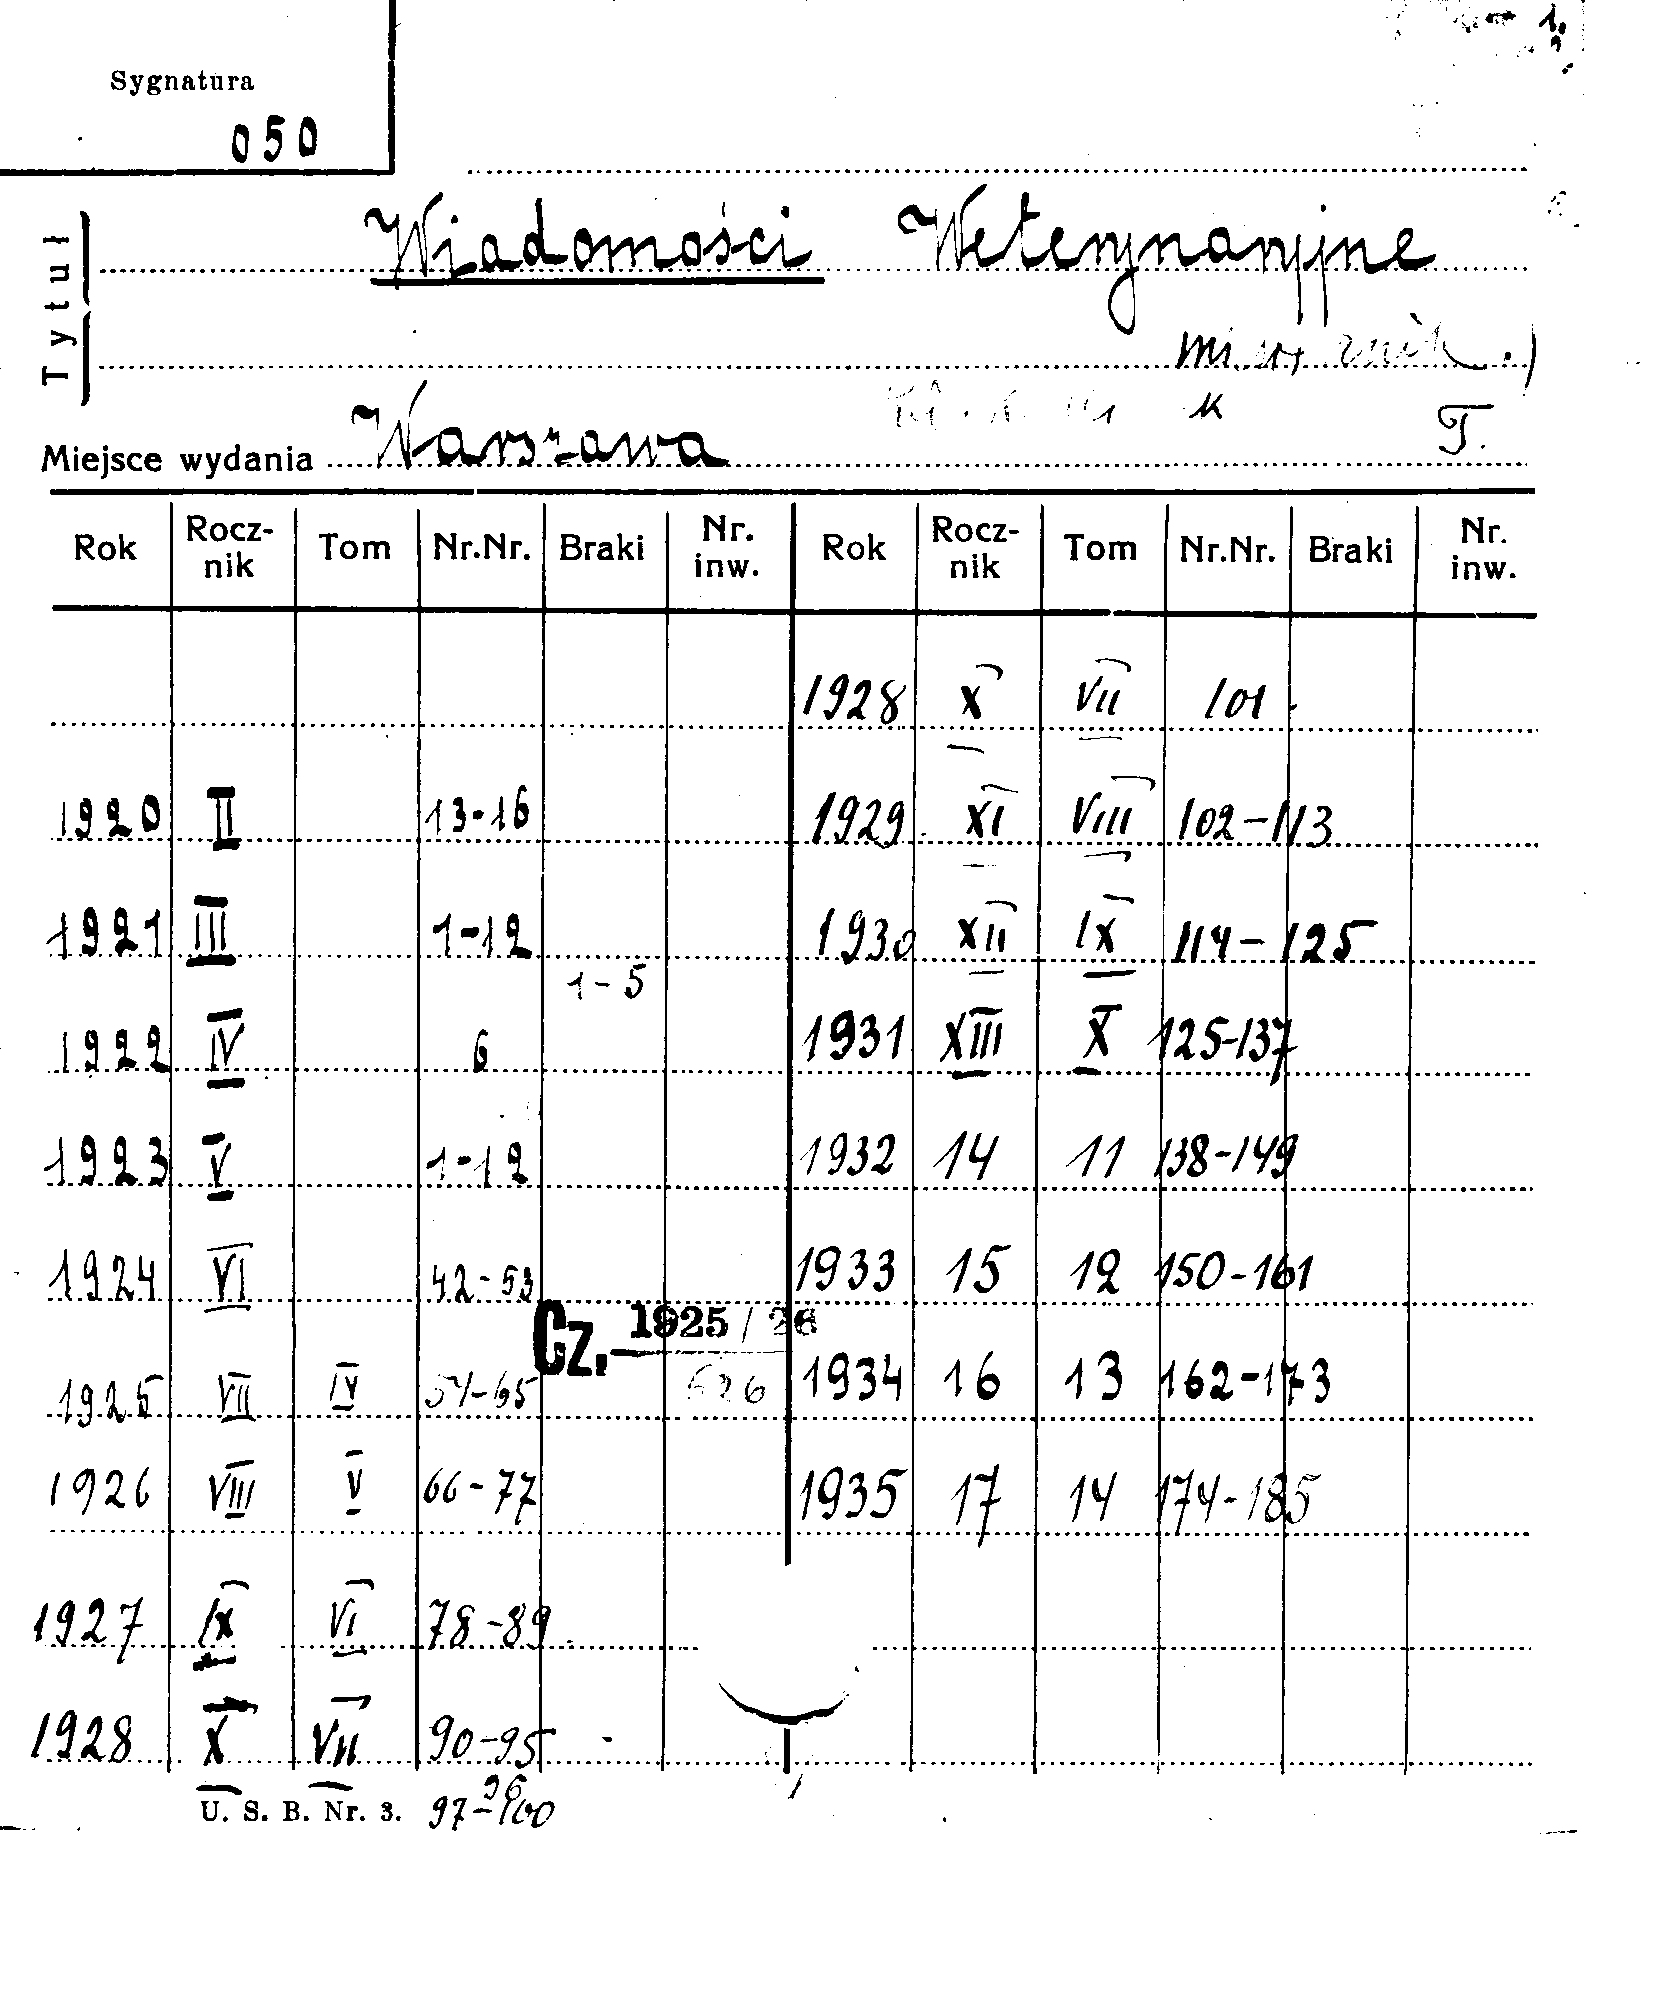 Sygnatura
050
Tytuł
Wiadomości Weterynaryjne
T.
Miejsce wydania Warszawa
Rok Rocz-nik Tom Nr.Nr. Braki Nr. inw. Rok Rocz-nik Tom Nr.Nr. Braki Nr. inw.
1928 X VII 101
1920 II 13-16 1929 XI VIII 102-113
1921 III 1-12 1930 XII IX 114-125
1-5
1922 IV 6 1931 XIII X 125-137
1923 V 1-12 1932 14 11 138-149
1924 VI 42-53 1933 15 12 150-161
Cz. 1925/26
626
1925 VII IV 54-65 1934 16 13 162-173
1926 VIII V 66-77 1935 17 14 174-185
1927 IX VI 78-89
1928 X VII 90-95
96
U. S. B. Nr. 3. 97-100